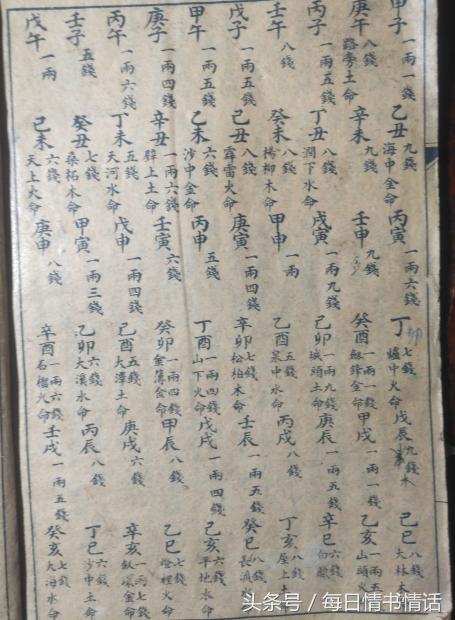 甲子一兩一錢 乙丑九錢海中金命 丙寅一兩六錢 丁卯七錢爐中火命 戊辰九錢木 己巳八錢大林木
庚午八錢路旁土命 辛未九錢 壬申九錢 癸酉一兩一錢劍鋒金命 甲戌一兩一錢 乙亥一兩五山頭火
丙子一兩五錢 丁丑八錢澗下水命 戊寅一兩九錢 己卯一兩九錢城頭土命 庚辰一兩五錢 辛巳六錢白
壬午八錢 癸未八錢楊柳木命 甲申一兩 乙酉五錢泉中水命 丙戌八錢 丁亥八錢屋上
戊子一兩五錢 己丑八錢霹雷火命 庚寅一兩四錢 辛卯七錢松柏木命 壬辰一兩五錢 癸巳八錢長
甲午一兩五錢 乙未六錢沙中金命 丙申五錢 丁酉一兩四錢山下火命 戊戌一兩四錢 己亥六錢平地水命
庚子一兩四錢 辛丑一兩六錢壁上土命 壬寅六錢 癸卯一兩四錢金簿金命 甲辰八錢 乙巳七錢燈裡火命
丙午一兩六錢 丁未五錢天河水命 戊申一兩四錢 己酉五錢大澤土命 庚戌六錢 辛亥一兩七錢釵環金命
壬子五錢 癸丑七錢桑柘木命 甲寅一兩三錢 乙卯六錢大溪水命 丙辰八錢 丁巳六錢沙中土命
戊午一兩 己未六錢天上火命 庚申八錢 辛酉一兩六錢石榴火命 壬戌一兩五錢 癸亥七錢大海水命
头条号 / 每日情书情话